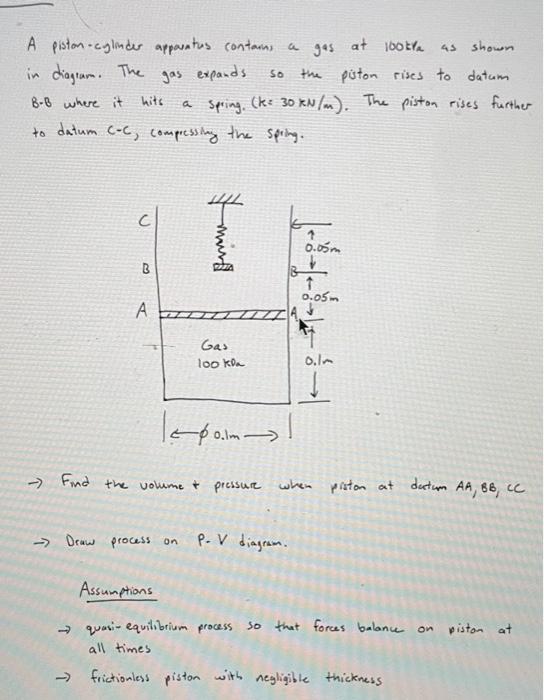 A piston-cylinder apparatus contains a gas at 100kPa as shown
in diagram. The gas expands so the piston rises to datum
B-B where it hits a spring. (k= 30 kN/m). The piston rises further
to datum C-C, compressing the spring.
C
0.05m
B
B
0.05m
A
A
Gas
100 kPa
0.1m
ϕ 0.1m
→ Find the volume + pressure when piston at datum AA, BB, CC
→ Draw process on P-V diagram.
Assumptions
→ quasi-equilibrium process so that forces balance on piston at
all times
→ frictionless piston with negligible thickness